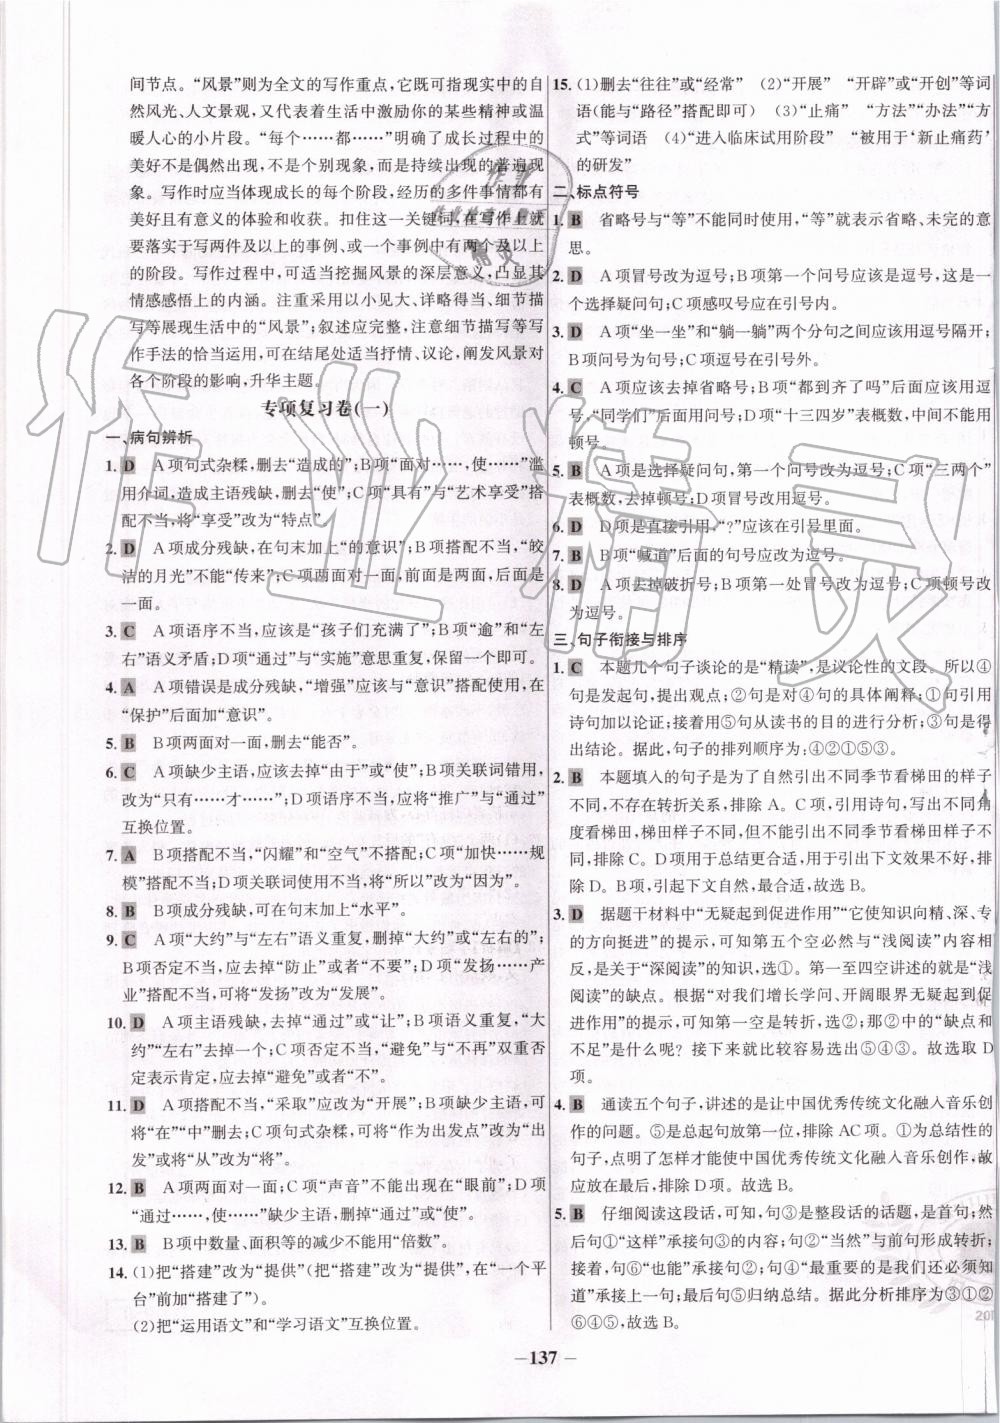 间节点。“风景”则为全文的写作重点,它既可指现实中的自
然风光、人文景观,又代表着生活中激励你的某些精神或温
暖人心的小片段。“每个……都……”明确了成长过程中的
美好不是偶然出现,不是个别现象,而是持续出现的普遍现
象。写作时应当体现成长的每个阶段,经历的多件事情都有
美好且有意义的体验和收获。扣住这一关键词,在写作中就
要落实于写两件及以上的事例、或一件中有两个及以上的
的阶段。写作过程中,可适当挖掘风景的深层意义,凸显其
情感感悟上的内涵。注重采用以小见大、详略得当、细节描
写等展现生活中的“风景”;叙述应完整,注意细节描写等写
作手法的恰当运用,可在结尾处适当抒情、议论,阐发风景对
各个阶段的影响,升华主题。
专项复习卷(一)
一、病句辨析
1. D A项句式杂糅,删去“造成的”;B项“面对……,使……”滥
用介词,造成主语残缺,删去“使”;C项“具有”与“艺术享受”搭
配不当,将“享受”改为“特点”。
2. D A项成分残缺,在句末加上“的意识”;B项搭配不当,“皎
洁的月光”不能“传来”;C项两面对一面,前面是两面,后面是
一面。
3. C A项语序不当,应该是“孩子们充满了”;B项“逾”和“左
右”语义矛盾;D项“通过”与“实施”意思重复,保留一个即可。
4. A A项错误是成分残缺,“增强”应该与“意识”搭配使用,在
“保护”后面加“意识”。
5. B B项两面对一面,删去“能否”。
6. C A项缺少主语,应该去掉“由于”或“使”;B项关联词错用,
改为“只有……才……”;D项语序不当,应将“推广”与“通过”
互换位置。
7. A B项搭配不当,“闪耀”和“空气”不搭配;C项“加快……规
模”搭配不当;D项关联词使用不当,将“所以”改为“因为”。
8. B B项成分残缺,可在句末加上“水平”。
9. C A项“大约”与“左右”语义重复,删掉“大约”或“左右的”;
B项否定不当,应去掉“防止”或者“不要”;D项“发扬……产
业”搭配不当,可将“发扬”改为“发展”。
10. D A项主语残缺,去掉“通过”或“让”;B项语义重复,“大
约”“左右”去掉一个;C项否定不当,“避免”与“不再”双重否
定表示肯定,应去掉“避免”或者“不”。
11. D A项搭配不当,“采取”应改为“开展”;B项缺少主语,可
将“在”“中”删去;C项句式杂糅,可将“作为出发点”改为“出
发”或将“从”改为“将”。
12. B A项两面对一面;C项“声音”不能出现在“眼前”;D项
“通过……,使……”缺少主语,删掉“通过”或“使”。
13. B B项中数量、面积等的减少不能用“倍数”。
14. (1)把“搭建”改为“提供”(把“搭建”改为“提供”,在“一个平
台”前加“搭建了”)。
(2)把“运用语文”和“学习语文”互换位置。
15. (1)删去“往往”或“经常” (2)“开展” “开辟”或“开创”等词
语(能与“路径”搭配即可) (3)“止痛” “方法”“办法”“方
式”等词语 (4)“进入临床试用阶段” “被用于‘新止痛药’
的研发”
二、标点符号
1. B 省略号与“等”不能同时使用,“等”就表示省略、未完的意
思。
2. D A项冒号改为逗号;B项第一个问号应该是逗号,这是一
个选择疑问句;C项感叹号应在引号内。
3. D A项“坐一坐”和“躺一躺”两个分句之间应该用逗号隔开;
B项问号为句号;C项句号在引号外。
4. C A项应该去掉省略号;B项“都到齐了吗”后面应该用逗
号,“同学们”后面用问号;D项“十三四岁”表概数,中间不能用
顿号。
5. B A项是选择疑问句,第一个问号改为逗号;C项“三两个”
表概数,去掉顿号;D项冒号改为逗号。
6. D D项是直接引用,“?”应该在引号里面。
7. B B项“喊道”后面的句号应改为逗号。
8. D A项去掉破折号;B项第一处冒号改为逗号;C项顿号改
为逗号。
三、句子衔接与排序
1. C 本题几个句子谈论的是“精读”,是议论性的文段。所以④
句是发起句,提出观点;②句是对④句的具体阐释;①句引用
诗句加以论证;接着用⑤句从读书的目的进行分析;③句是得
出结论。据此,句子的排列顺序为:④②①⑤③。
2. B 本题填入的句子是为了自然引出不同季节看梯田的样子
不同,不存在转折关系,排除A。C项,引用诗句,写出不同角
度看梯田,梯田样子不同,但不仅仅是角度不同,还有季节不
同,排除C。D项,用于总结更合适,用于引出下文效果不好,
排除D。B项,引起下文自然,最合适,故选B。
3. D 据题干材料中“无疑起到促进作用”“它使知识向精、深、专
的方向挺进”的提示,可知第五个空必然与“浅阅读”内容相
反,是关于“深阅读”的知识,选①。第一至四空讲述的就是“浅
阅读”的缺点。根据“对我们增长学问、开阔眼界无疑起到促
进作用”的提示,可知第一空是转折,选②;那②中的“缺点和
不足”是什么呢?接下来就比较容易选出⑤④③。故选取D
项。
4. B 通读五个句子,讲述的是让中国优秀传统文化融入音乐创
作的问题。⑤是总起句放第一位,排除AC项。①为总结性的
句子,点明了怎样才能使中国优秀传统文化融入音乐创作,故
应放在最后,排除D项。故选B。
5. B 仔细阅读这段话,可知,句③是整段话的话题,是首句;然
后句①“这样”承接句③的内容;句②“当然”与前句形成转折;
接着,句⑥“也能”承接句②;句④“最重要的是我们还必须知
道”承接上一句;句⑤归纳总结。据此分析排序为③①②
⑥④⑤,故选B。
— 137 —
作业精灵